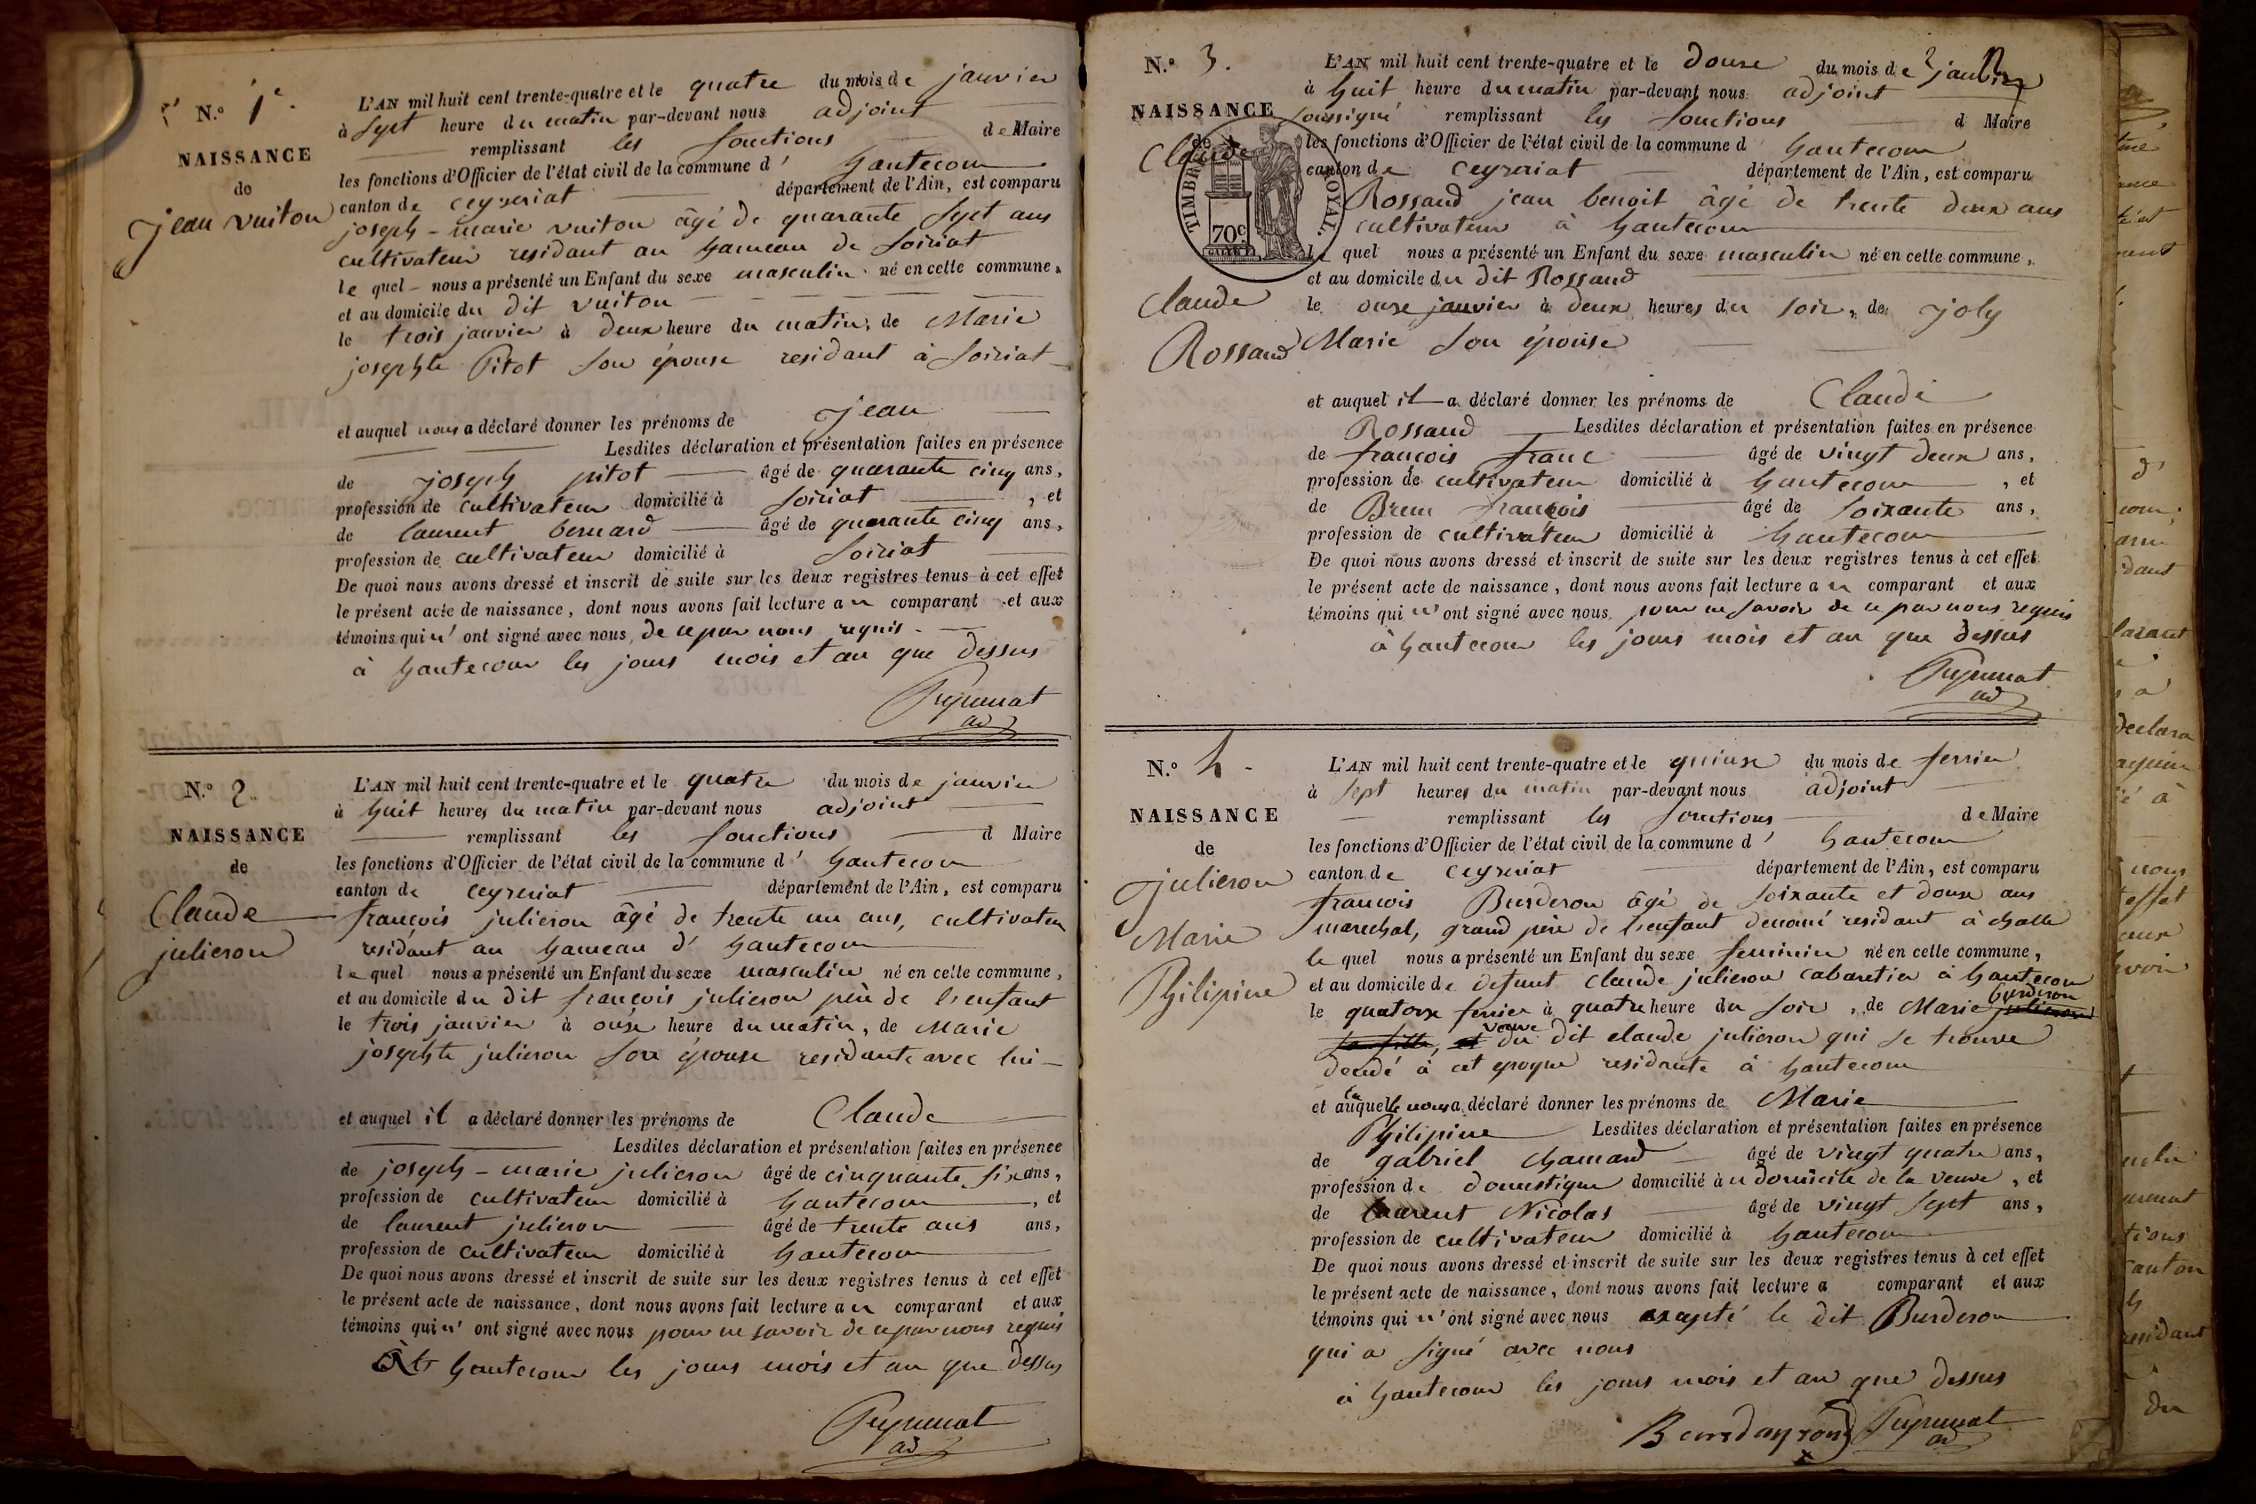 N.º 1er.
NAISSANCE
de
jean vuiton
L'AN mil huit cent trente-quatre et le quatre du mois de janvier
à sept heure du matin par-devant nous adjoint
remplissant les fonctions de Maire
les fonctions d'Officier de l'état civil de la commune d' hautecour
canton de ceyzeriat département de l'Ain, est comparu
joseph-marie vuiton âgé de quarante sept ans
cultivateur residant au hameau de soiriat
le quel nous a présenté un Enfant du sexe masculin né en celle commune,
et au domicile du dit vuiton
le trois janvier à deux heure du matin, de Marie
josephte Pitot son épouse residant à soiriat
et auquel nous a déclaré donner les prénoms de jean
Lesdites déclaration et présentation faites en présence
de joseph pitot âgé de quarante cinq ans,
profession de cultivateur domicilié à soiriat , et
de laurent bernard âgé de quarante cinq ans,
profession de cultivateur domicilié à soiriat
De quoi nous avons dressé et inscrit de suite sur les deux registres tenus à cet effet
le présent acte de naissance, dont nous avons fait lecture au comparant et aux
témoins qui n' ont signé avec nous, de ce par nous requis.
à hautecour les jours mois et an que dessus
ad
N.º 2.
NAISSANCE
de
Claude
julieron
L'AN mil huit cent trente-quatre et le quatre du mois de janvier
à huit heures du matin par-devant nous adjoint
remplissant les fonctions d Maire
les fonctions d'Officier de l'état civil de la commune d' hautecour
canton de ceyzeriat département de l'Ain, est comparu
françois julieron âgé de trente un ans, cultivateur
residant au hameau d' hautecour
le quel nous a présenté un Enfant du sexe masculin né en celle commune,
et au domicile du dit françois julieron père de l'enfant
le trois janvier à onse heure du matin, de Marie
josephte julieron son épouse residante avec lui
et auquel il a déclaré donner les prénoms de Claude
Lesdites déclaration et présentation faites en présence
de joseph-marie julieron âgé de cinquante six ans,
profession de cultivateur domicilié à hautecour , et
de laurent julieron âgé de trente ans ans,
profession de cultivateur domicilié à hautecour
De quoi nous avons dressé et inscrit de suite sur les deux registres tenus à cet effet
le présent acte de naissance, dont nous avons fait lecture au comparant et aux
témoins qui n' ont signé avec nous pour ne savoir de ce par nous requis
hautecour les jours mois et an que dessus
ad
N.º 3.
NAISSANCE
de
Claude
TIMBRE ROYAL.
70c
Claude
Rossand
L'AN mil huit cent trente-quatre et le douse du mois de janvier
à huit heure du matin par-devant nous adjoint
soussigné remplissant les fonctions d Maire
les fonctions d'Officier de l'état civil de la commune d hautecour
canton de ceyzeriat département de l'Ain, est comparu
Rossand jean benoit âgé de trente deux ans
cultivateur à hautecour
le quel nous a présenté un Enfant du sexe masculin né en celle commune,
et au domicile du dit Rossand
le onse janvier à deux heures du soir, de joly
Marie son épouse
et auquel il a déclaré donner les prénoms de Claude
Rossand Lesdites déclaration et présentation faites en présence
de françois franc âgé de vingt deux ans,
profession de cultivateur domicilié à hautecour , et
de Brun françois âgé de soixante ans,
profession de cultivateur domicilié à hautecour
De quoi nous avons dressé et inscrit de suite sur les deux registres tenus à cet effet
le présent acte de naissance, dont nous avons fait lecture au comparant et aux
témoins qui n' ont signé avec nous pour ne savoir de ce par nous requis
à hautecour les jours mois et an que dessus
ad
N.º 4.
NAISSANCE
de
julieron
Marie
Philipine
L'AN mil huit cent trente-quatre et le quinse du mois de fevrier
à sept heures du matin par-devant nous adjoint
remplissant les fonctions de Maire
les fonctions d'Officier de l'état civil de la commune d' hautecour
canton de ceyzeriat département de l'Ain, est comparu
francois Burderon âgé de soixante et douse ans
marechal, grand père de l'enfant denomé residant à challe
le quel nous a présenté un Enfant du sexe feminin né en celle commune,
et au domicile de defunt claude julieron cabaretier à hautecour
le quatorse fevrier à quatre heure du soir, de Marie burderon
veuve du dit claude julieron qui se trouve
decédé à cet epoque residante à hautecour
et a laquelle nous a déclaré donner les prénoms de Marie
Philipine Lesdites déclaration et présentation faites en présence
de gabriel chamard âgé de vingt quatre ans,
profession de domestique domicilié au domicile de la veuve , et
de laurent Nicolas âgé de vingt sept ans,
profession de cultivateur domicilié à hautecour
De quoi nous avons dressé et inscrit de suite sur les deux registres tenus à cet effet
le présent acte de naissance, dont nous avons fait lecture a comparant et aux
témoins qui n' ont signé avec nous exapté le dit Burderon
qui a signé avec nous
à hautecour les jours mois et an que dessus
ad